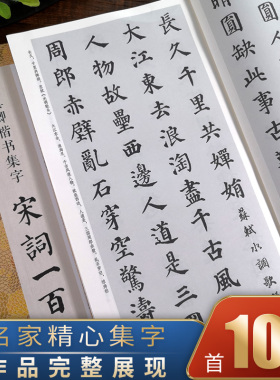 圓缺此事
長久千里共嬋娟
蘇軾水調歌
大江東去浪淘盡千古風
人物故壘西邊人道是三
周郎赤壁亂石穿空驚濤
卿楷书集字
宋詞一百
名家精心集字
作品完整展现
首10